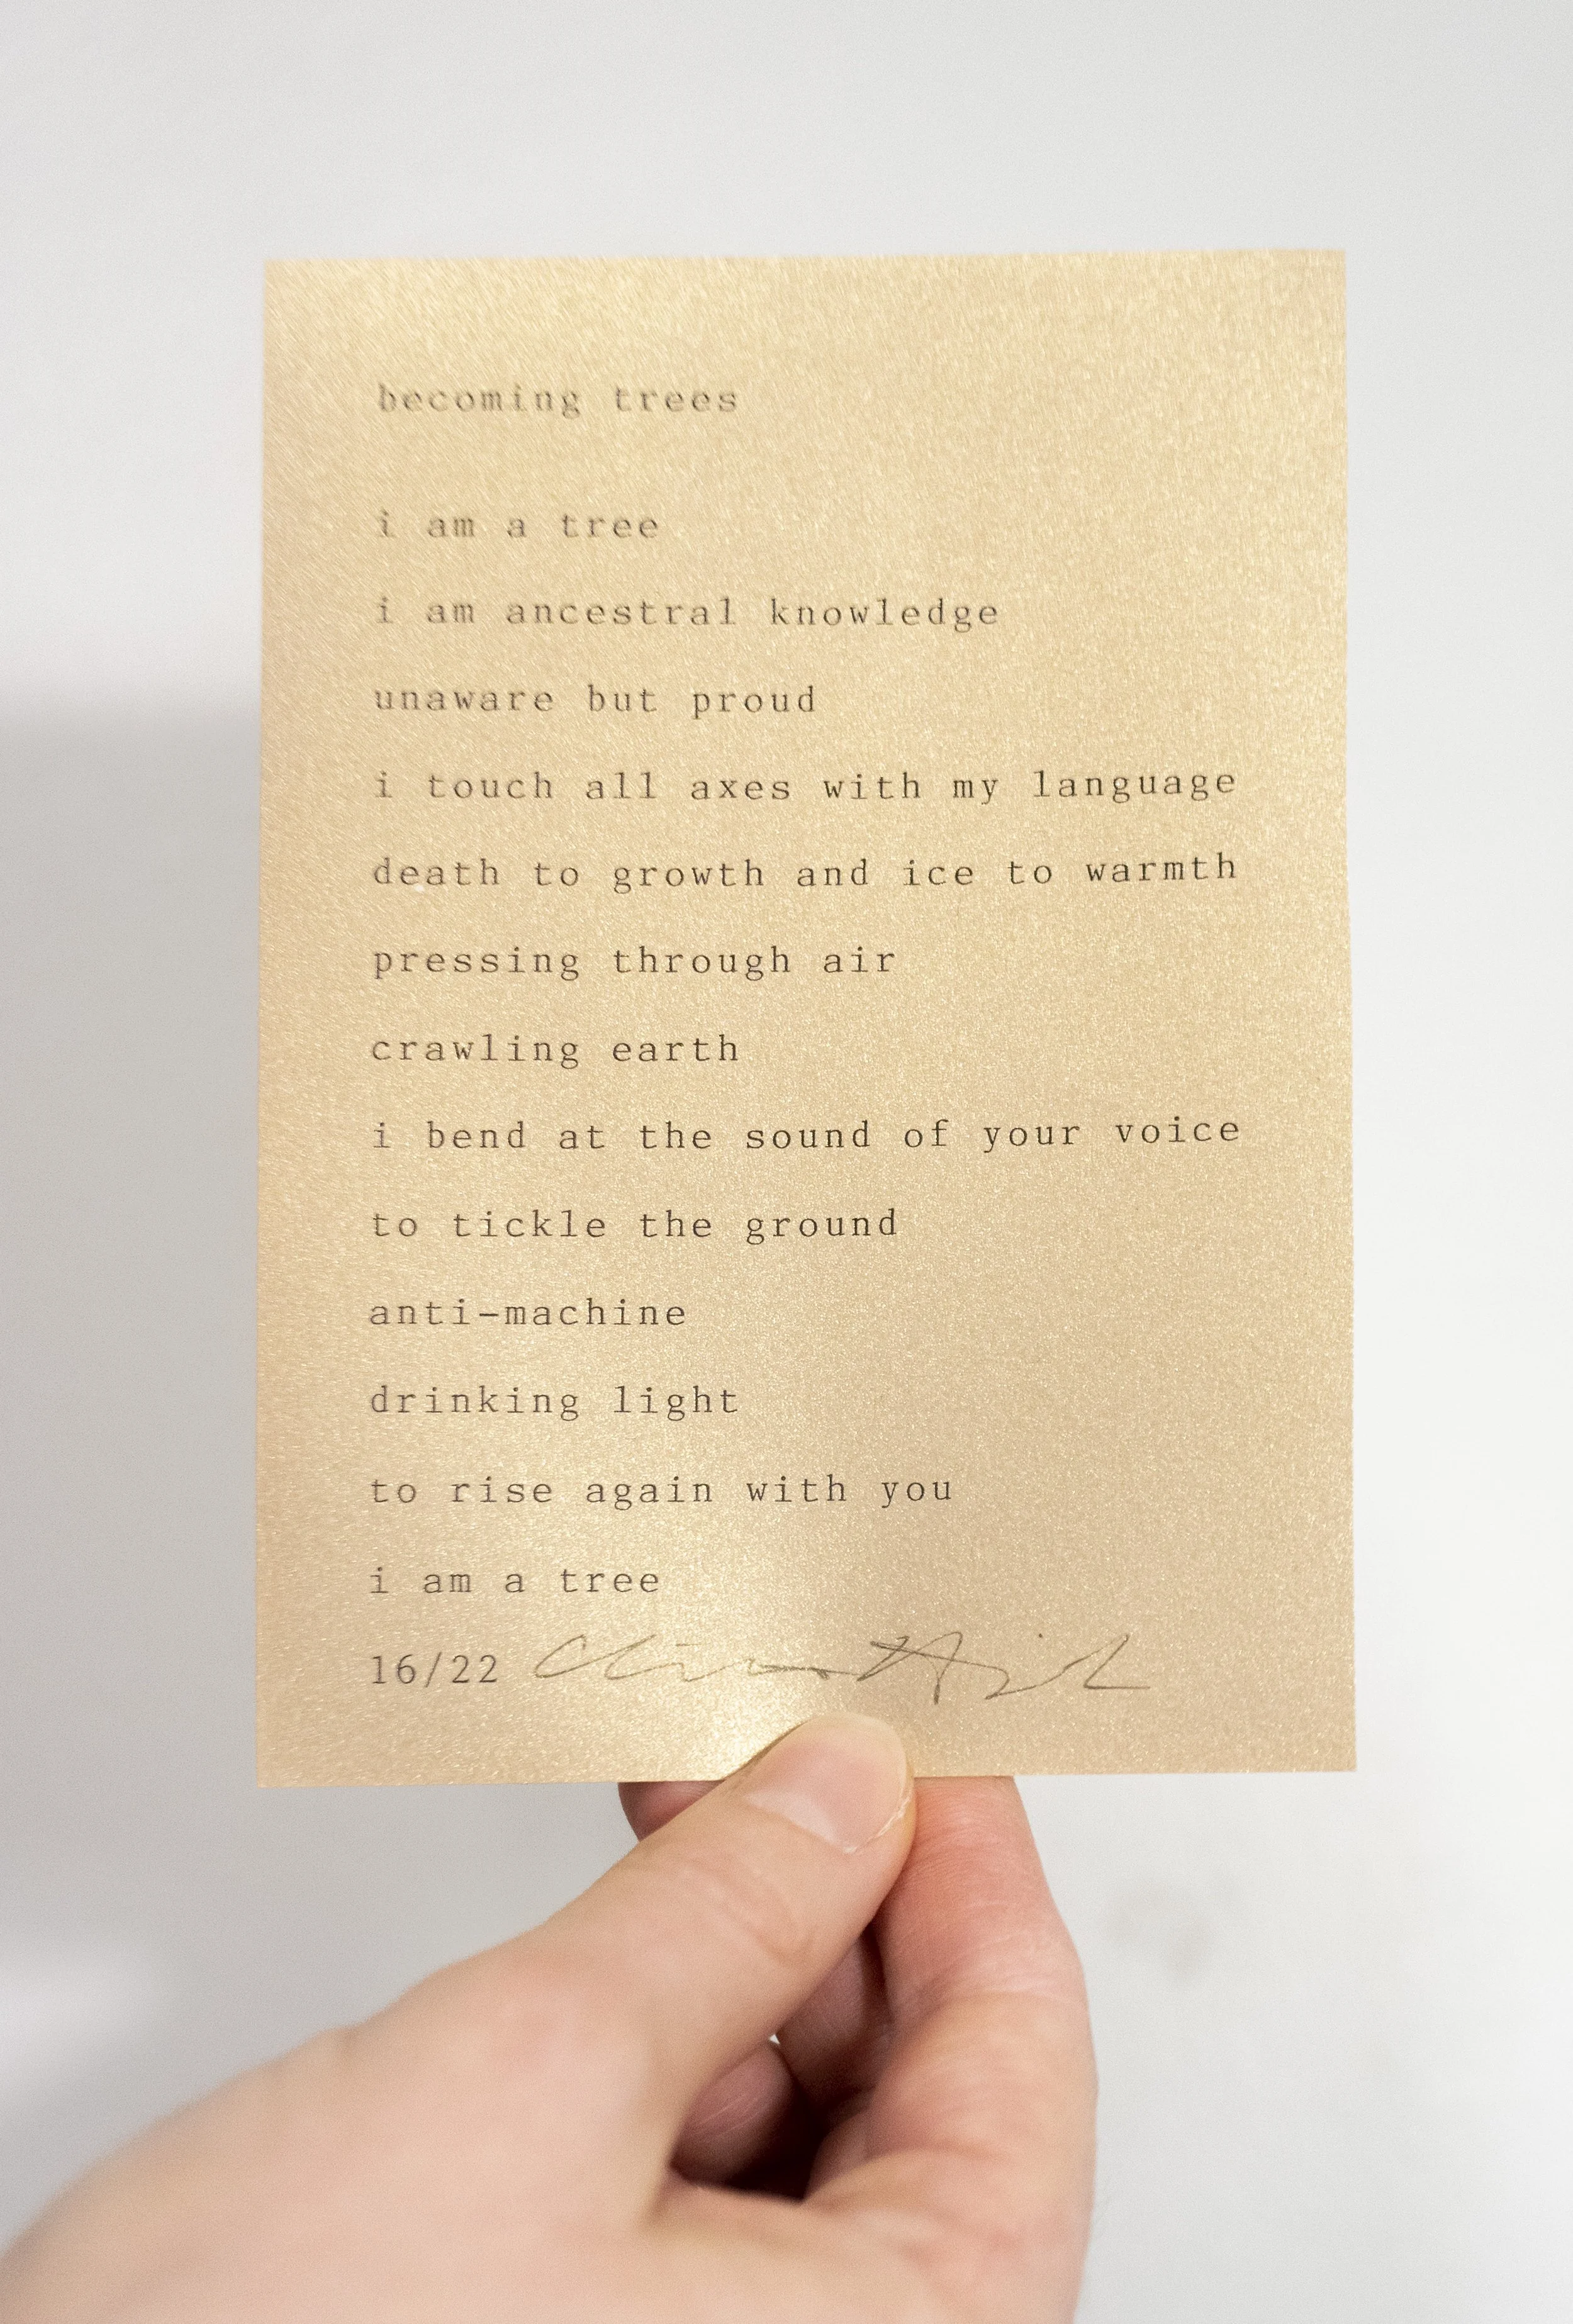 becoming trees
i am a tree
i am ancestral knowledge
unaware but proud
i touch all axes with my language
death to growth and ice to warmth
pressing through air
crawling earth
i bend at the sound of your voice
to tickle the ground
anti-machine
drinking light
to rise again with you
i am a tree
16/22